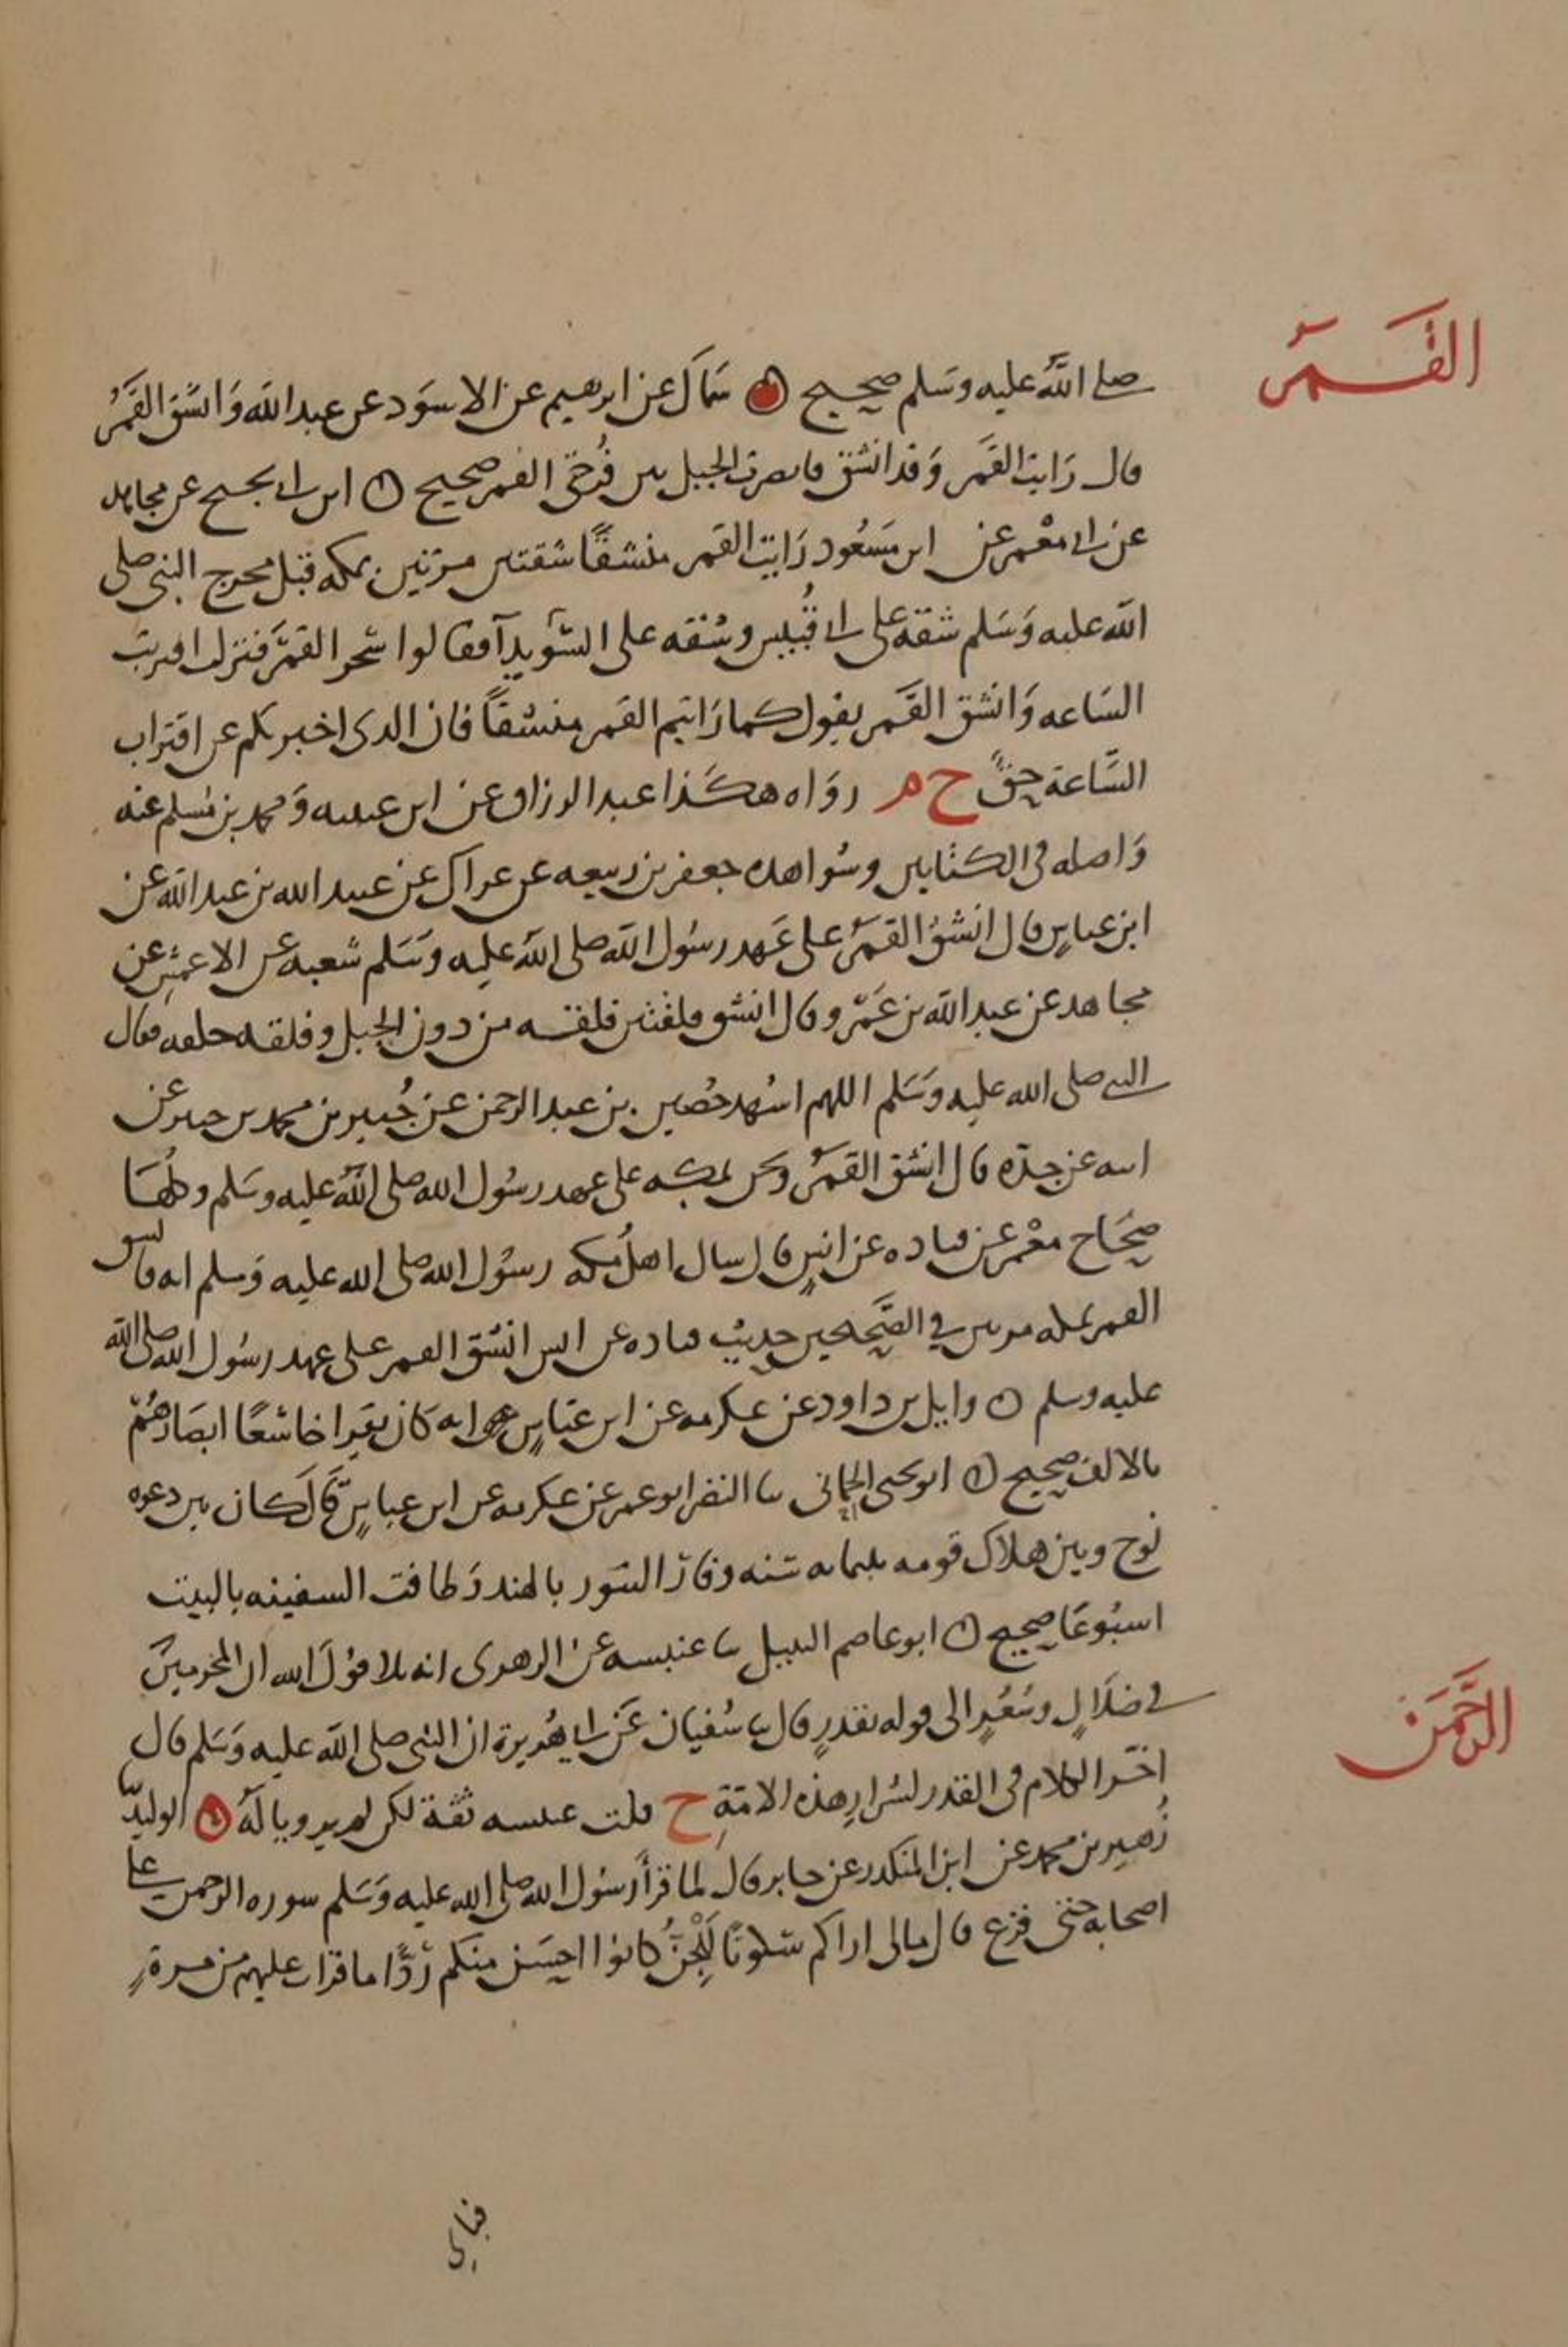 القمر
صلى الله عليه وسلم صحيح ۞ سماك عن ابرهيم عن الاسود عن عبد الله وانشق القمر
قال رايت القمر وقد انشق فابصرت الجبل بين فرجتي القمر صحيح ن ابن ابي نجيح عن مجاهد
عن ابي معمر عن ابن مسعود رايت القمر منشقا شقتين مرتين بمكه قبل مخرج النبي صلى
الله عليه وسلم شقه على ابي قبيس وشقه على السويدآ فقالوا سحر القمر فنزلت اقتربت
الساعه وانشق القمر يقول كما رايتم القمر منشقاً فان الذي اخبرتكم عن اقتراب
الساعة حقٌ خ م رواه هكذا عبد الرزاق عن ابن عيينه ومحمد بن مسلم عنه
واصله في الكتابين وشواهده جعفر بن ربيعه عن عراك عن عبيد الله بن عبد الله عن
ابن عباسٍ قال انشق القمر على عهد رسول الله صلى الله عليه وسلم شعبه عن الاعمش عن
مجاهد عن عبد الله بن عمر وقال انشق فلقتين فلقه من دون الجبل وفلقه خلفه فقال
النبي صلى الله عليه وسلم اللهم اشهد حصين بن عبد الرحمن عن جبير بن محمد بن جبير عن
ابيه عن جده قال انشق القمر ونحن بمكه على عهد رسول الله صلى الله عليه وسلم وكلها
صحاح معمر عن قتاده عن انسٍ قال سال اهل مكه رسول الله صلى الله عليه وسلم ايه فانشق
القمر بمكه مرتين في الصحيحين حديث قتاده عن انس انشق القمر على عهد رسول الله صلى الله
عليه وسلم ن وايل بن داود عن عكرمه عن ابن عباسٍ انه كان يقرا خاشعًا ابصارهم
بالالف صحيح ن ابو يحيى الحماني ثنا النضر ابو عمر عن عكرمه عن ابن عباسٍ قال كان بين دعوه
نوح وبين هلاك قومه ثلثمايه سنه وفار التنور بالهند وطافت السفينه بالبيت
اسبوعًا صحيح ن ابو عاصم النبيل ثنا عنبسه عن الزهري انه تلا قول الله ان المجرمين
في ضلالٍ وسعرٍ الى قوله بقدرٍ قال ثنا سفيان عن ابي هريرة ان النبي صلى الله عليه وسلم قال
اخر الكلام في القدر لشرار هذه الامة خ قلت عنبسه ثقة لكن لم يرويا له ۞ الوليد ثنا
الرحمن
زهير بن محمد عن ابن المنكدر عن جابر قال لما قرأ رسول الله صلى الله عليه وسلم سوره الرحمن على
اصحابه حتى فرغ قال مالي اراكم سكوتًا للجن كانوا احسن منكم ردًّا ما قرات عليهم من مرةٍ
فباي